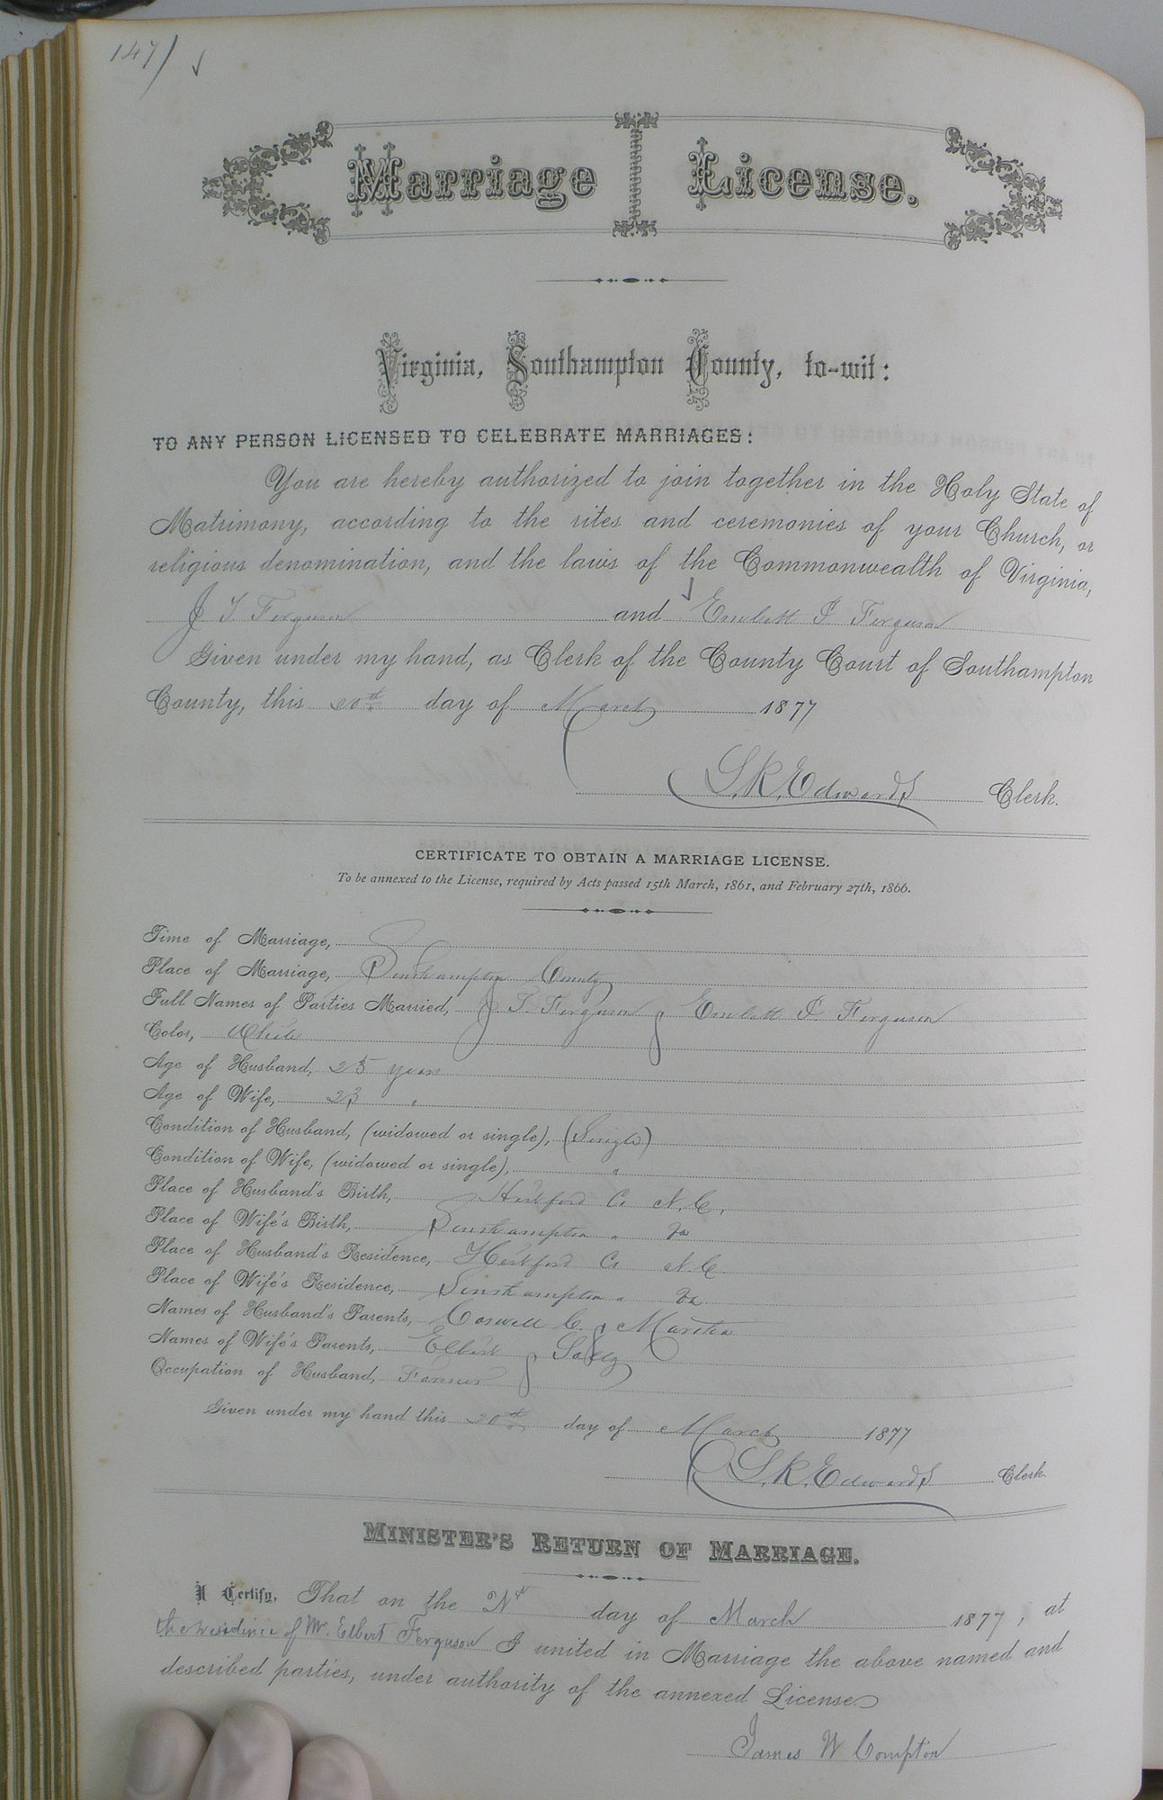 147/
Marriage License.
Virginia, Southampton County, to-wit:
TO ANY PERSON LICENSED TO CELEBRATE MARRIAGES:
You are hereby authorized to join together in the Holy State of
Matrimony, according to the rites and ceremonies of your Church, or
religious denomination, and the laws of the Commonwealth of Virginia,
J T Ferguson and Ferguson
Given under my hand, as Clerk of the County Court of Southampton
County, this 20th day of March 1877
L. R. Edwards Clerk.
CERTIFICATE TO OBTAIN A MARRIAGE LICENSE.
To be annexed to the License, required by Acts passed 15th March, 1861, and February 27th, 1866.
Time of Marriage,
Place of Marriage, Southampton County
Full Names of Parties Married, J. T. Ferguson & Ferguson
Color, White
Age of Husband, 25 years
Age of Wife, 23 "
Condition of Husband, (widowed or single), (Single)
Condition of Wife, (widowed or single), "
Place of Husband's Birth, Hertford Co N. C.
Place of Wife's Birth, Southampton " Va
Place of Husband's Residence, Hertford Co N. C.
Place of Wife's Residence, Southampton " Va
Names of Husband's Parents, Coswell C. & Martha
Names of Wife's Parents, Elbert & Sally
Occupation of Husband, Farmer
Given under my hand this 20th day of March 1877
L. R. Edwards Clerk.
MINISTER'S RETURN OF MARRIAGE.
I Certify, That on the day of March 1877, at
the residence of Mr. Elbert Ferguson I united in Marriage the above named and
described parties, under authority of the annexed License
James W Compton